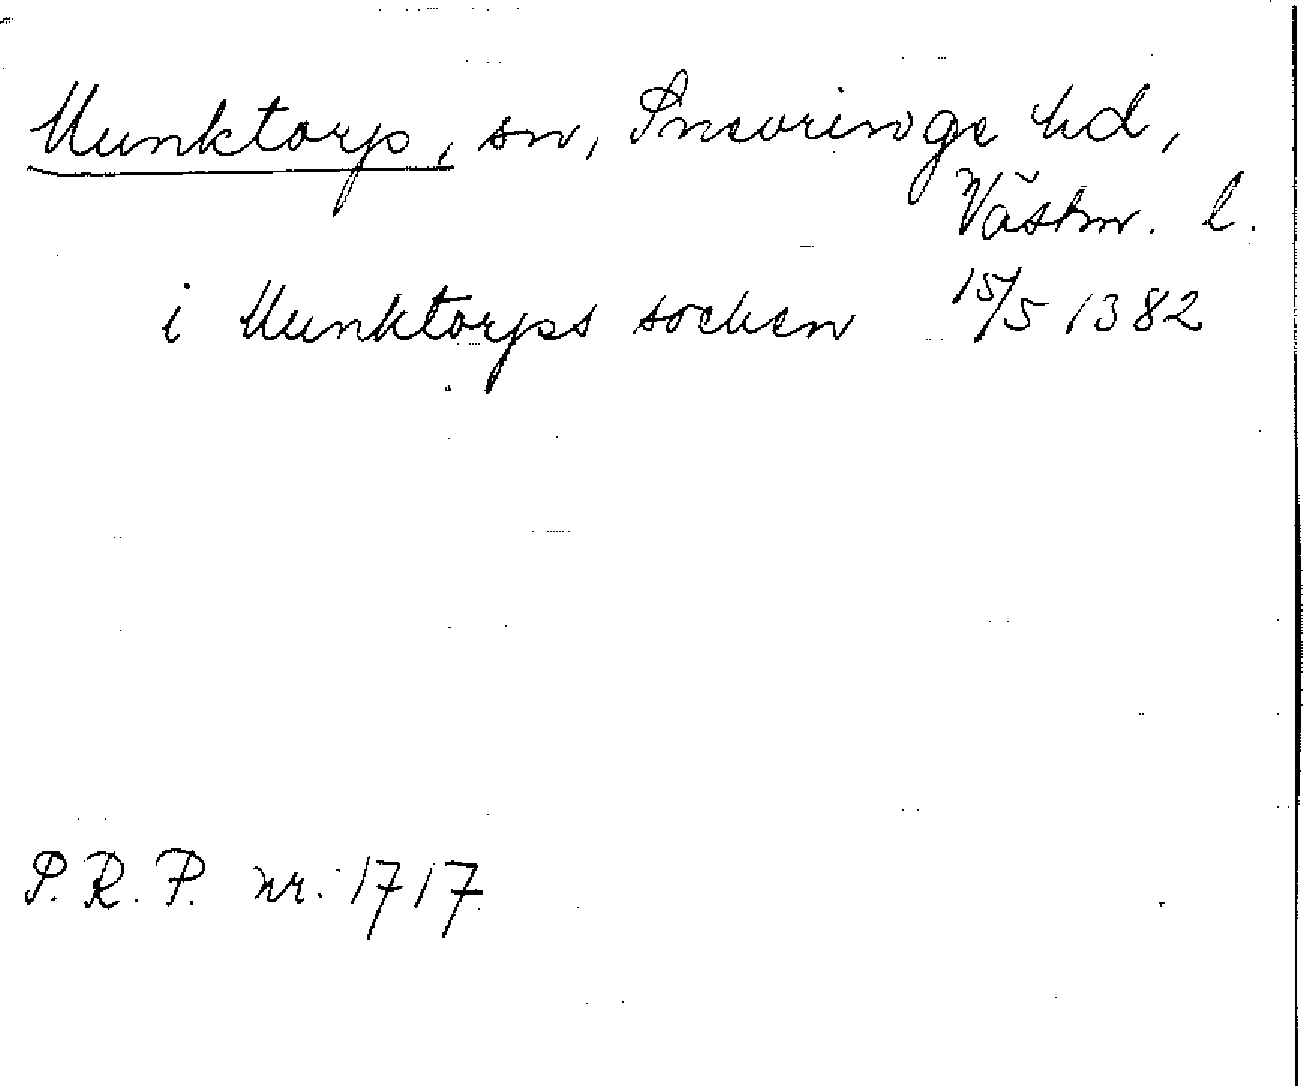 Munktorp, sn, Snevringe hd,
Västm. l.
i Munktorps socken 15/5 1382
P.R.P. nr. 1717